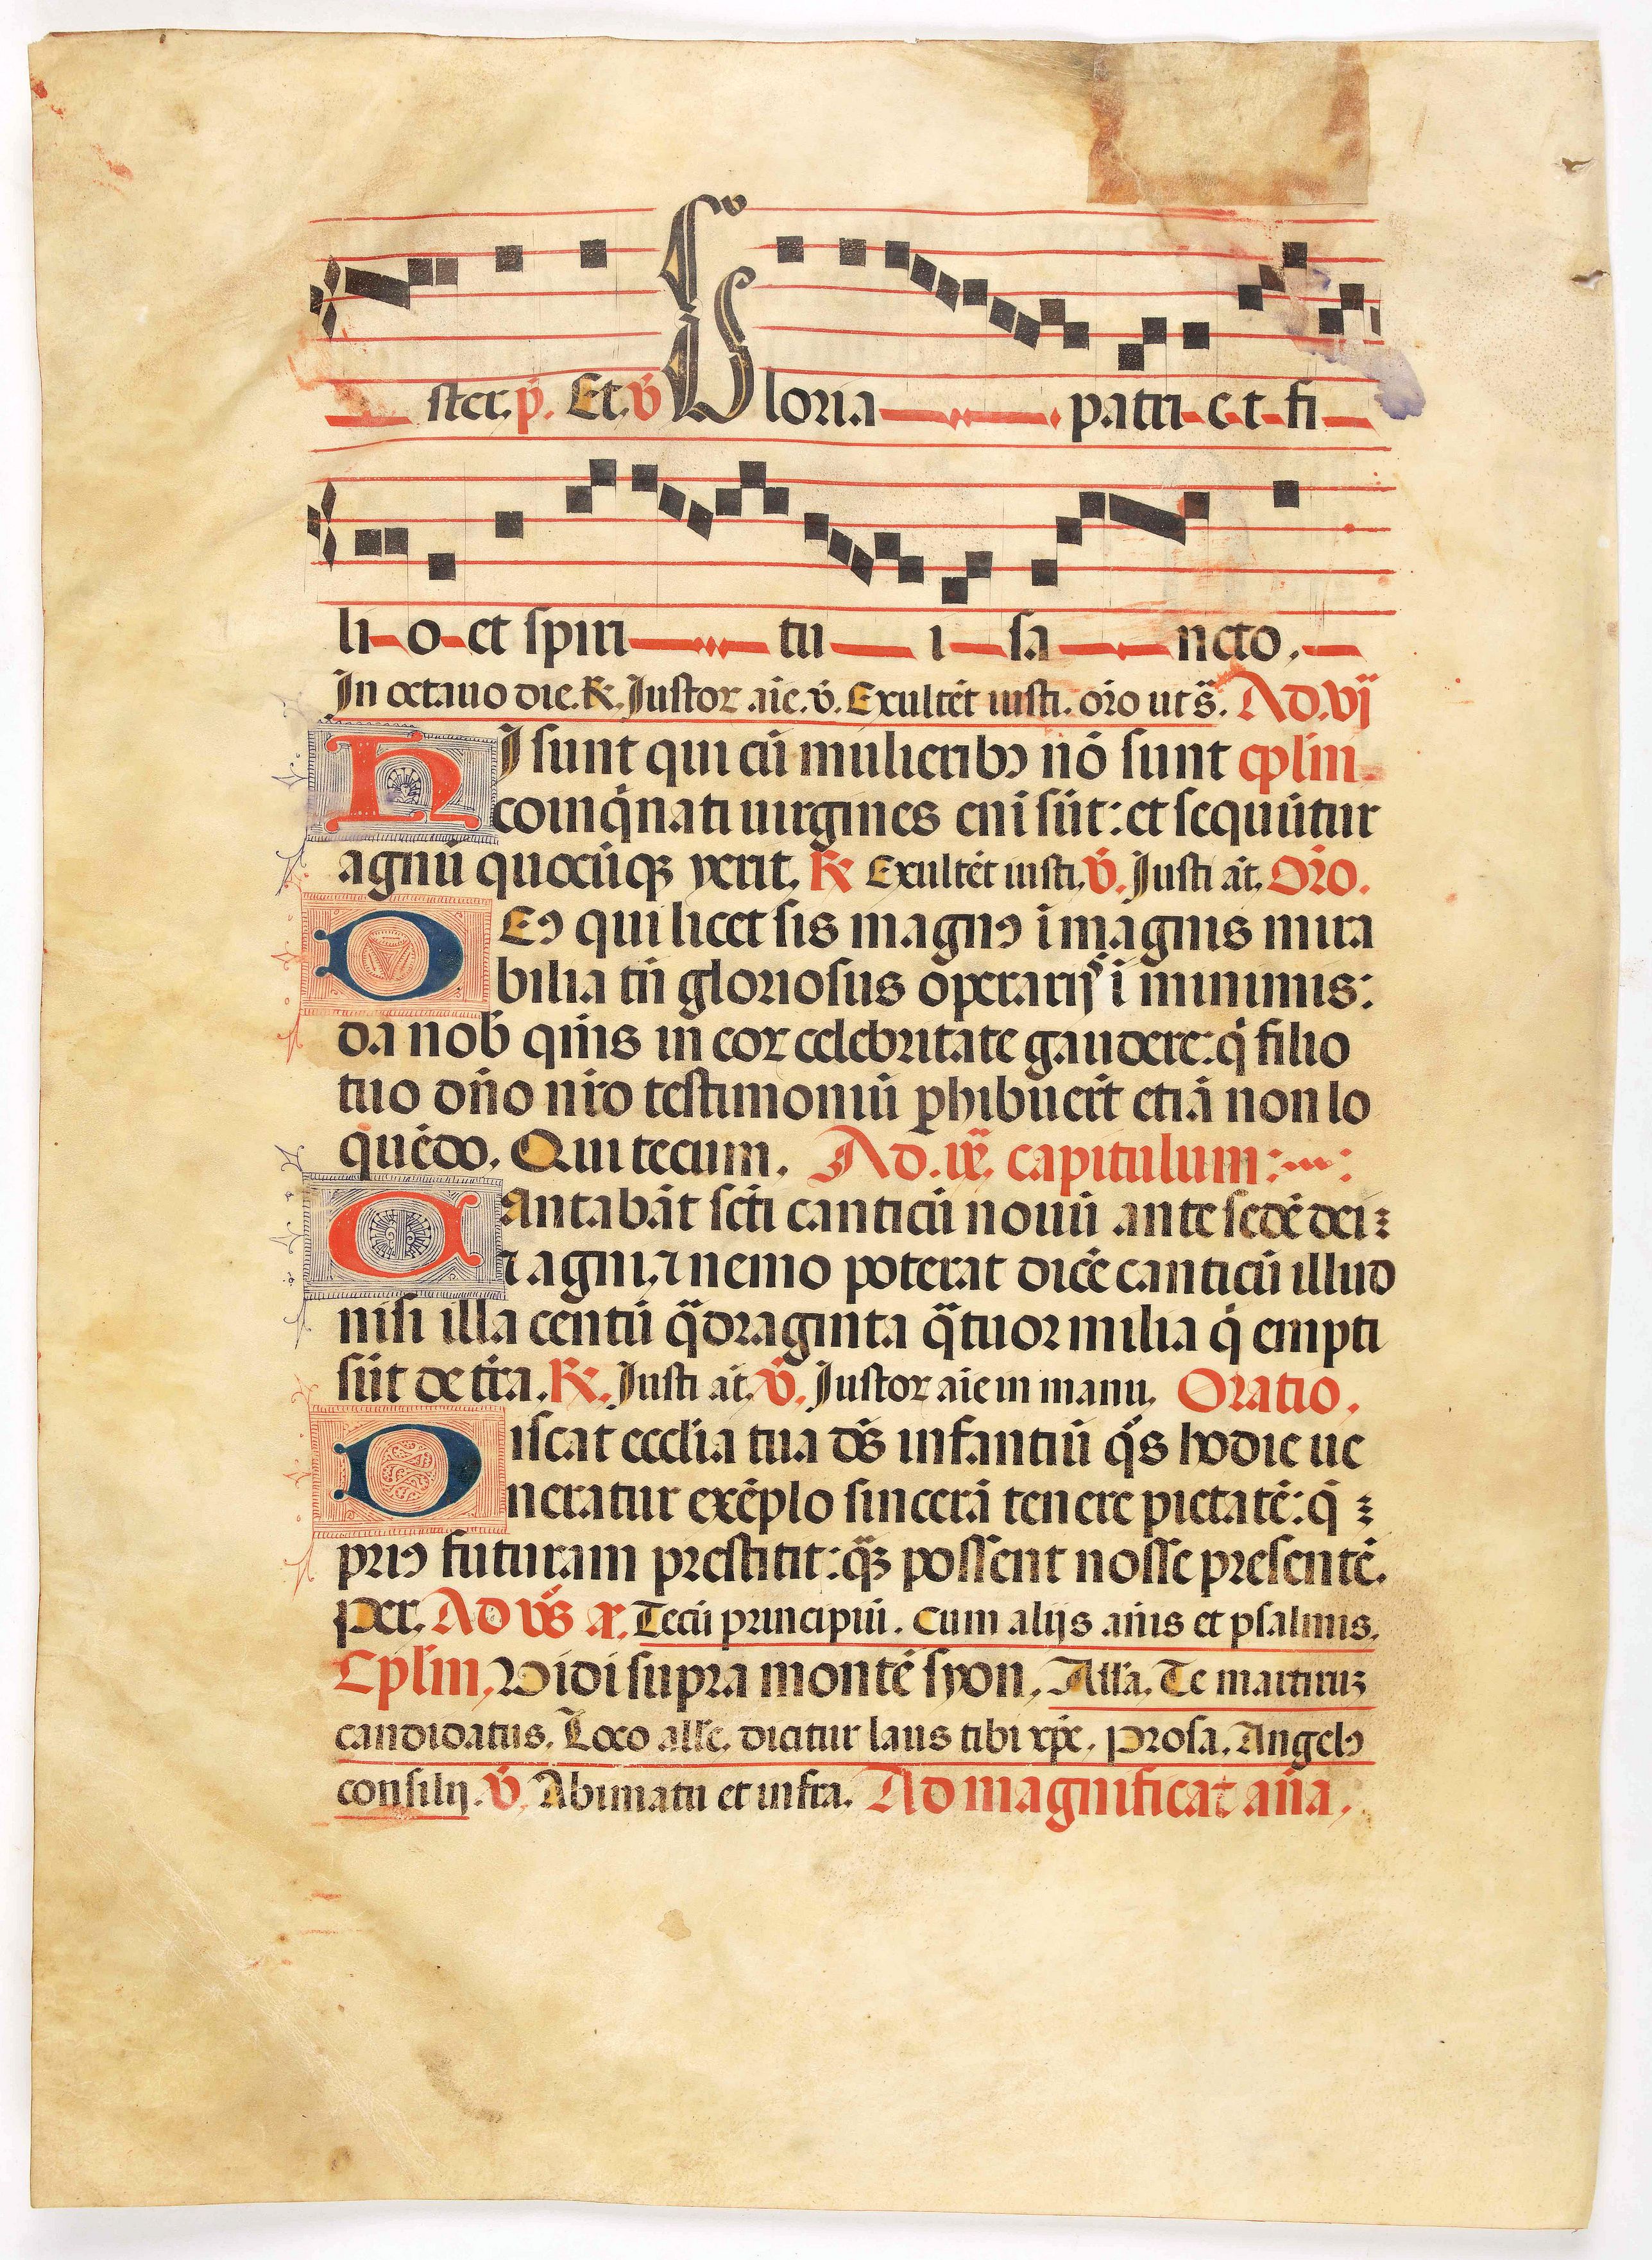 ster. p̃. Et. v̄ Gloria patri et fi
li o et spiri tu i sa ncto.
In octauo die. R̃. Justoꝝ aīe. v̄. Exultēt iusti. oīo ut s̄. Ad. vj
HJ sunt qui cū mulieribꝰ nō sunt cp̄lm.
coinq̇nati uirgines enī sūt: et sequūtur
agnū quocūqꝫ yerit. R̃ Exultēt iusti. v̄. Justi āt. Or̄o.
DEꝰ qui licet sis magnꝰ ī magnis mira
bilia tn̄ gloriosus operarisͥ ī minimis:
da nob̄ qm̄s in eoꝝ celebritate gaudere: q̇ filio
tuo dn̄o nr̄o testimoniū ꝑhibuer̄t etiā non lo
quēdo. Qui tecum. Ad. ix̄. capitulum:
Cantabāt sc̄ti canticū nouū ante sedē dei:
⁊ agni, ⁊ nemo poterat dicē canticū illud
nisi illa centū q̄draginta q̄tuor milia q̇ empti
sūt de tr̄a. R̃. Justi āt. v̄. Justoꝝ aīe in manu. Oratio.
Discat eccl̄ia tua dꝰs infantiū q̇s hodie ue
neratur exēplo sincerā tenere pietatē: q̄
priꝰ futuram prestitit: q̄ꝫ possent nosse presentē.
Per. Ad v̄s a. Tecū principiū. Cum alijs an̄is et psalmis.
Cp̄lm. Vidi supra montē syon. All̄a. Te martirūꝫ
candidatus. Loco all̄e. dicitur laus tibi xp̄e. Prosa. Angelꝰ
consilij. v̄. Abimatu et infra. Ad magnificat an̄a.